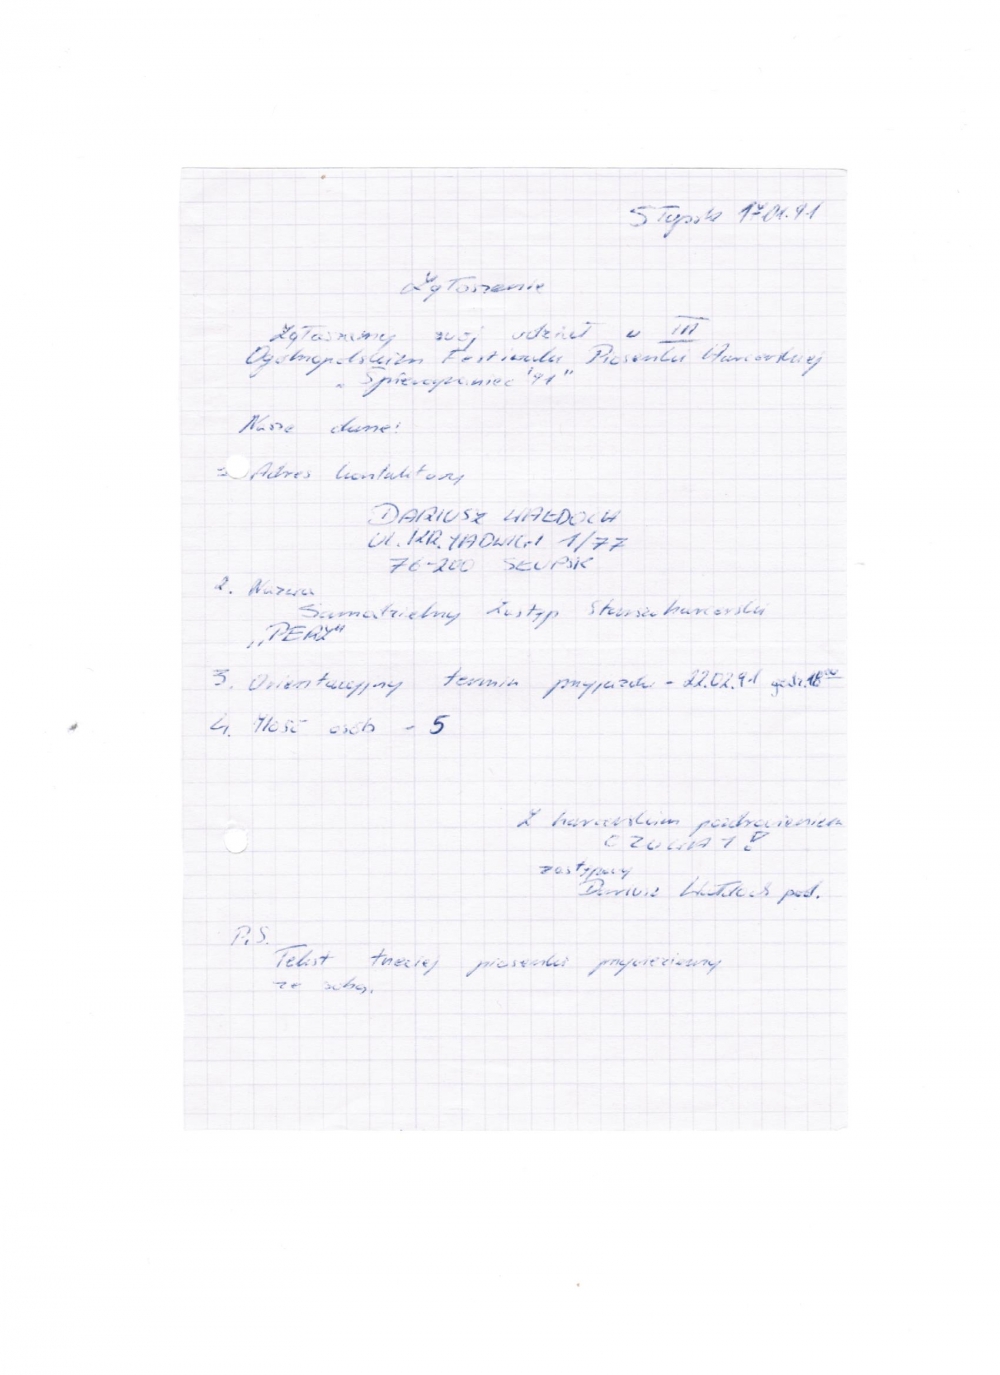 Słupsk 17.01.91
Zgłoszenie
Zgłaszamy swój udział w III
Ogólnopolskim Festiwalu Piosenki Harcerskiej
„Śpiewograniec '91"
Nasze dane:
1. Adres kontaktowy
DARIUSZ WAŁDOCH
UL. KR. JADWIGI 1/77
76-200 SŁUPSK
2. Nazwa
Samodzielny Zastęp Starszoharcerski
3. Orientacyjny termin przyjazdu - 22.02.91 godz. 18⁰⁰
4. Ilość osób - 5
Z harcerskim pozdrowieniem
CZUWAJ!
zastępowy
Dariusz Wałdoch
P.S.
Tekst trzeciej piosenki przywieziemy
ze sobą.